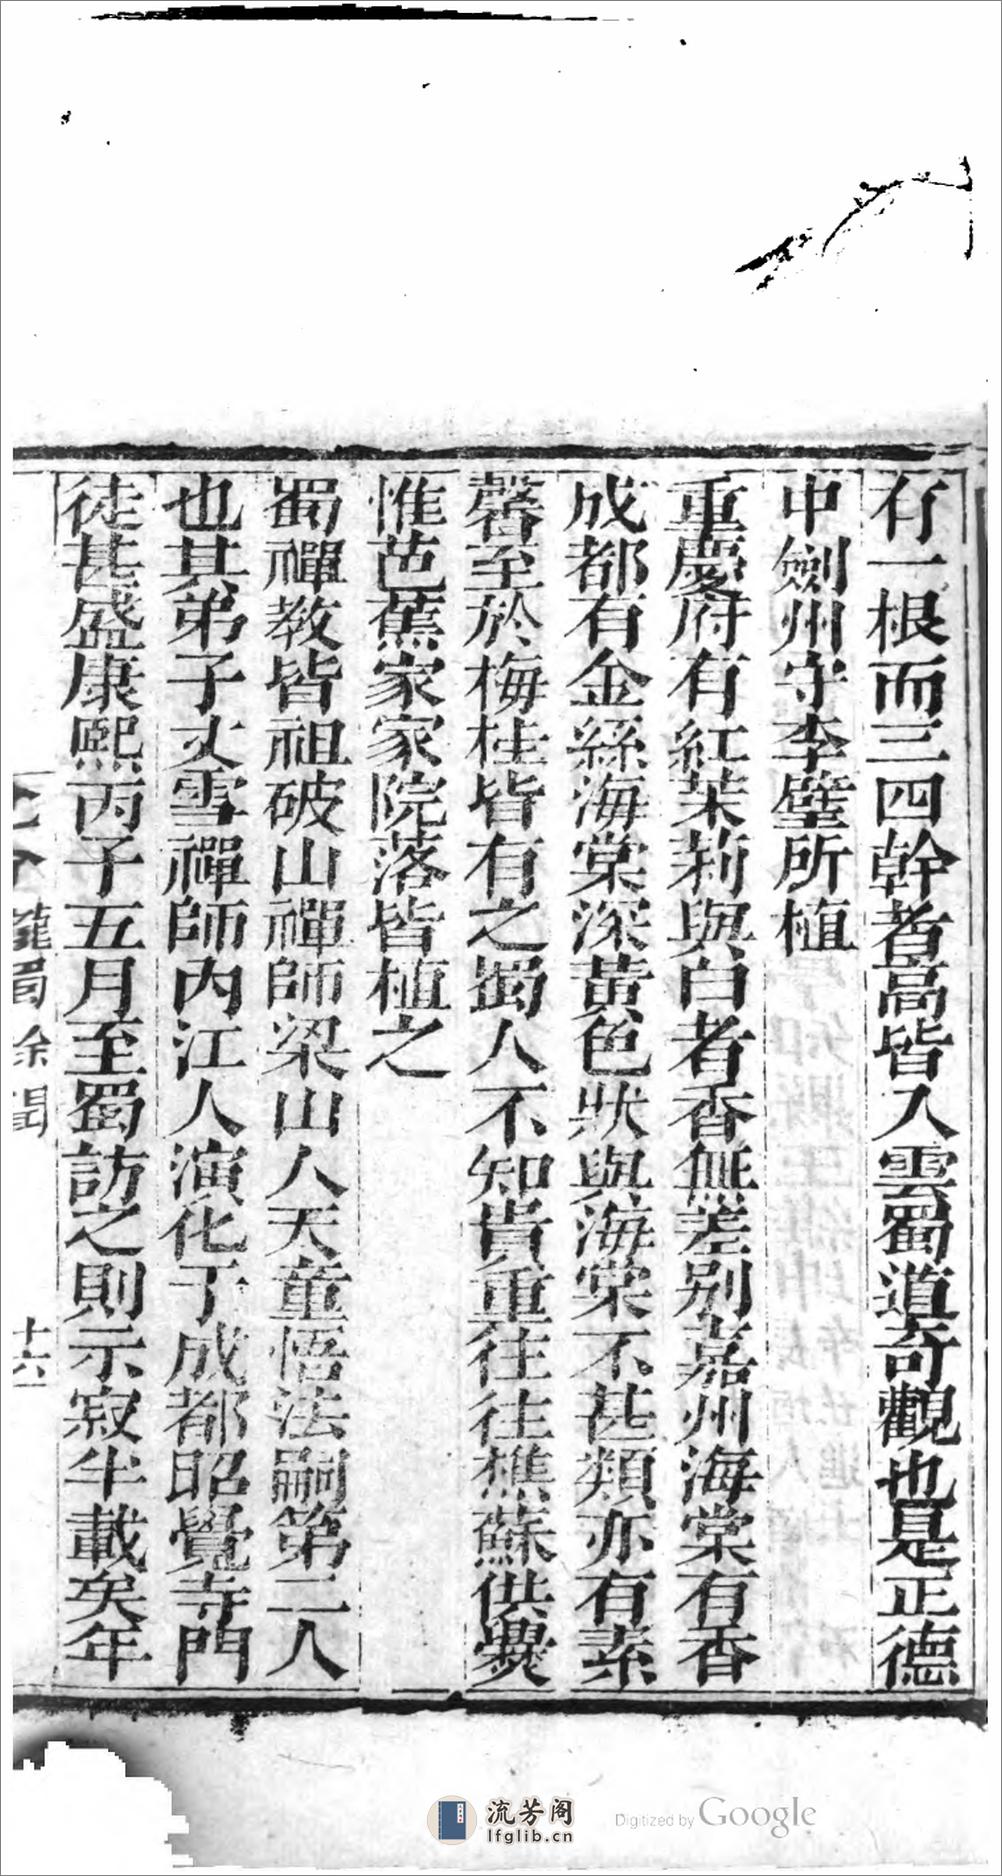 有一根而三四幹者高皆入雲蜀道奇觀也是正德
中劍州守李璧所植
重慶府有紅茉莉與白者香無差别嘉州海棠有香
成都有金絲海棠深黃色狀與海棠不甚類亦有素
馨至於梅桂皆有之蜀人不知貴重往往樵蘇供爨
惟芭蕉家家院落皆植之
蜀禪教皆祖破山禪師梁山人天童悟法嗣第二人
也其弟子丈雪禪師内江人演化于成都昭覺寺門
徒甚盛康熙丙子五月至蜀訪之則示寂半載矣年
隴蜀餘聞
十六
流芳阁
lfglib.cn
Digitized by Google